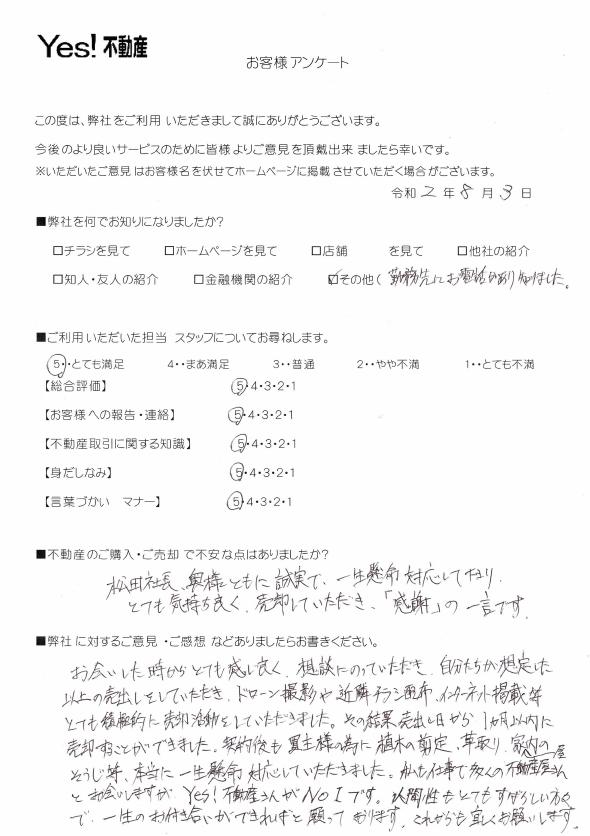 Yes!不動産
お客様アンケート
この度は、弊社をご利用 いただきまして誠にありがとうございます。
今後のより良いサービスのために皆様 よりご意見を頂戴出来 ましたら幸いです。
※いただいたご意見 はお客様名を伏せてホームページに掲載 させていただく場合がございます。
令和 2 年 8 月 3 日
■弊社を何でお知りになりましたか?
□チラシを見て □ホームページを見て □店舗 を見て □他社の紹介
□知人・友人の紹介 □金融機関の紹介 ☑その他( 勤務先にお電話があり知りました。
■ご利用いただいた担当 スタッフについてお尋ねします。
5・・とても満足 4・・まあ満足 3・・普通 2・・やや不満 1・・とても不満
【総合評価】 5・4・3・2・1
【お客様への報告・連絡】 5・4・3・2・1
【不動産取引に関する知識】 5・4・3・2・1
【身だしなみ】 5・4・3・2・1
【言葉づかい マナー】 5・4・3・2・1
■不動産のご購入・ご売却 で不安な点はありましたか?
松田社長、奥様ともに誠実で、一生懸命 対応しており、
とても気持ち良く、売却していただき、「感謝」の一言です。
■弊社 に対するご意見 ・ご感想 などありましたらお書きください。
お会いした時からとても感じ良く、相談にのっていただき、自分たちが想定した
以上の売出しをしていただき、ドローン撮影や近隣チラシ配布、インターネット掲載等
とても積極的に売却活動をしていただきました。その結果売出し日から1ヵ月以内に
売却することができました。契約後も買主様の為に植木の剪定、草取り、家内の
そうじ等、本当に一生懸命対応していただきました。私も仕事で多くの不動産屋さん
とお会いしますが、Yes!不動産さんがNO1です。人間性もとてもすばらしい方々
で、一生のお付き合いができればと願っております。これからも宜しくお願いします。